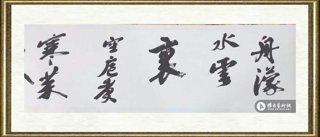 舟濛
水雲
裏
空庖煮
寒菜